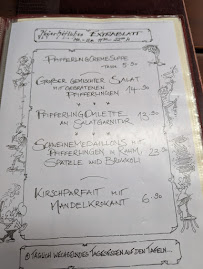 EXTRABLATT
PFIFFERLINGCREMESUPPE
5.50
GROßER GEMISCHTER SALAT
MIT GEBRATENEN
PFIFFERLINGEN 14.50
PFIFFERLINGOMLETTE 13.50
AN SALATGARNITUR
SCHWEINEMEDAILLONS MIT
PFIFFERLINGEN IN RAHM, 23.50
SPÄTZLE UND BROKKOLI
KIRSCHPARFAIT MIT
MANDELKROKANT 6.50
TÄGLICH WECHSELNDES TAGESESSEN AUF DEN TAFELN...